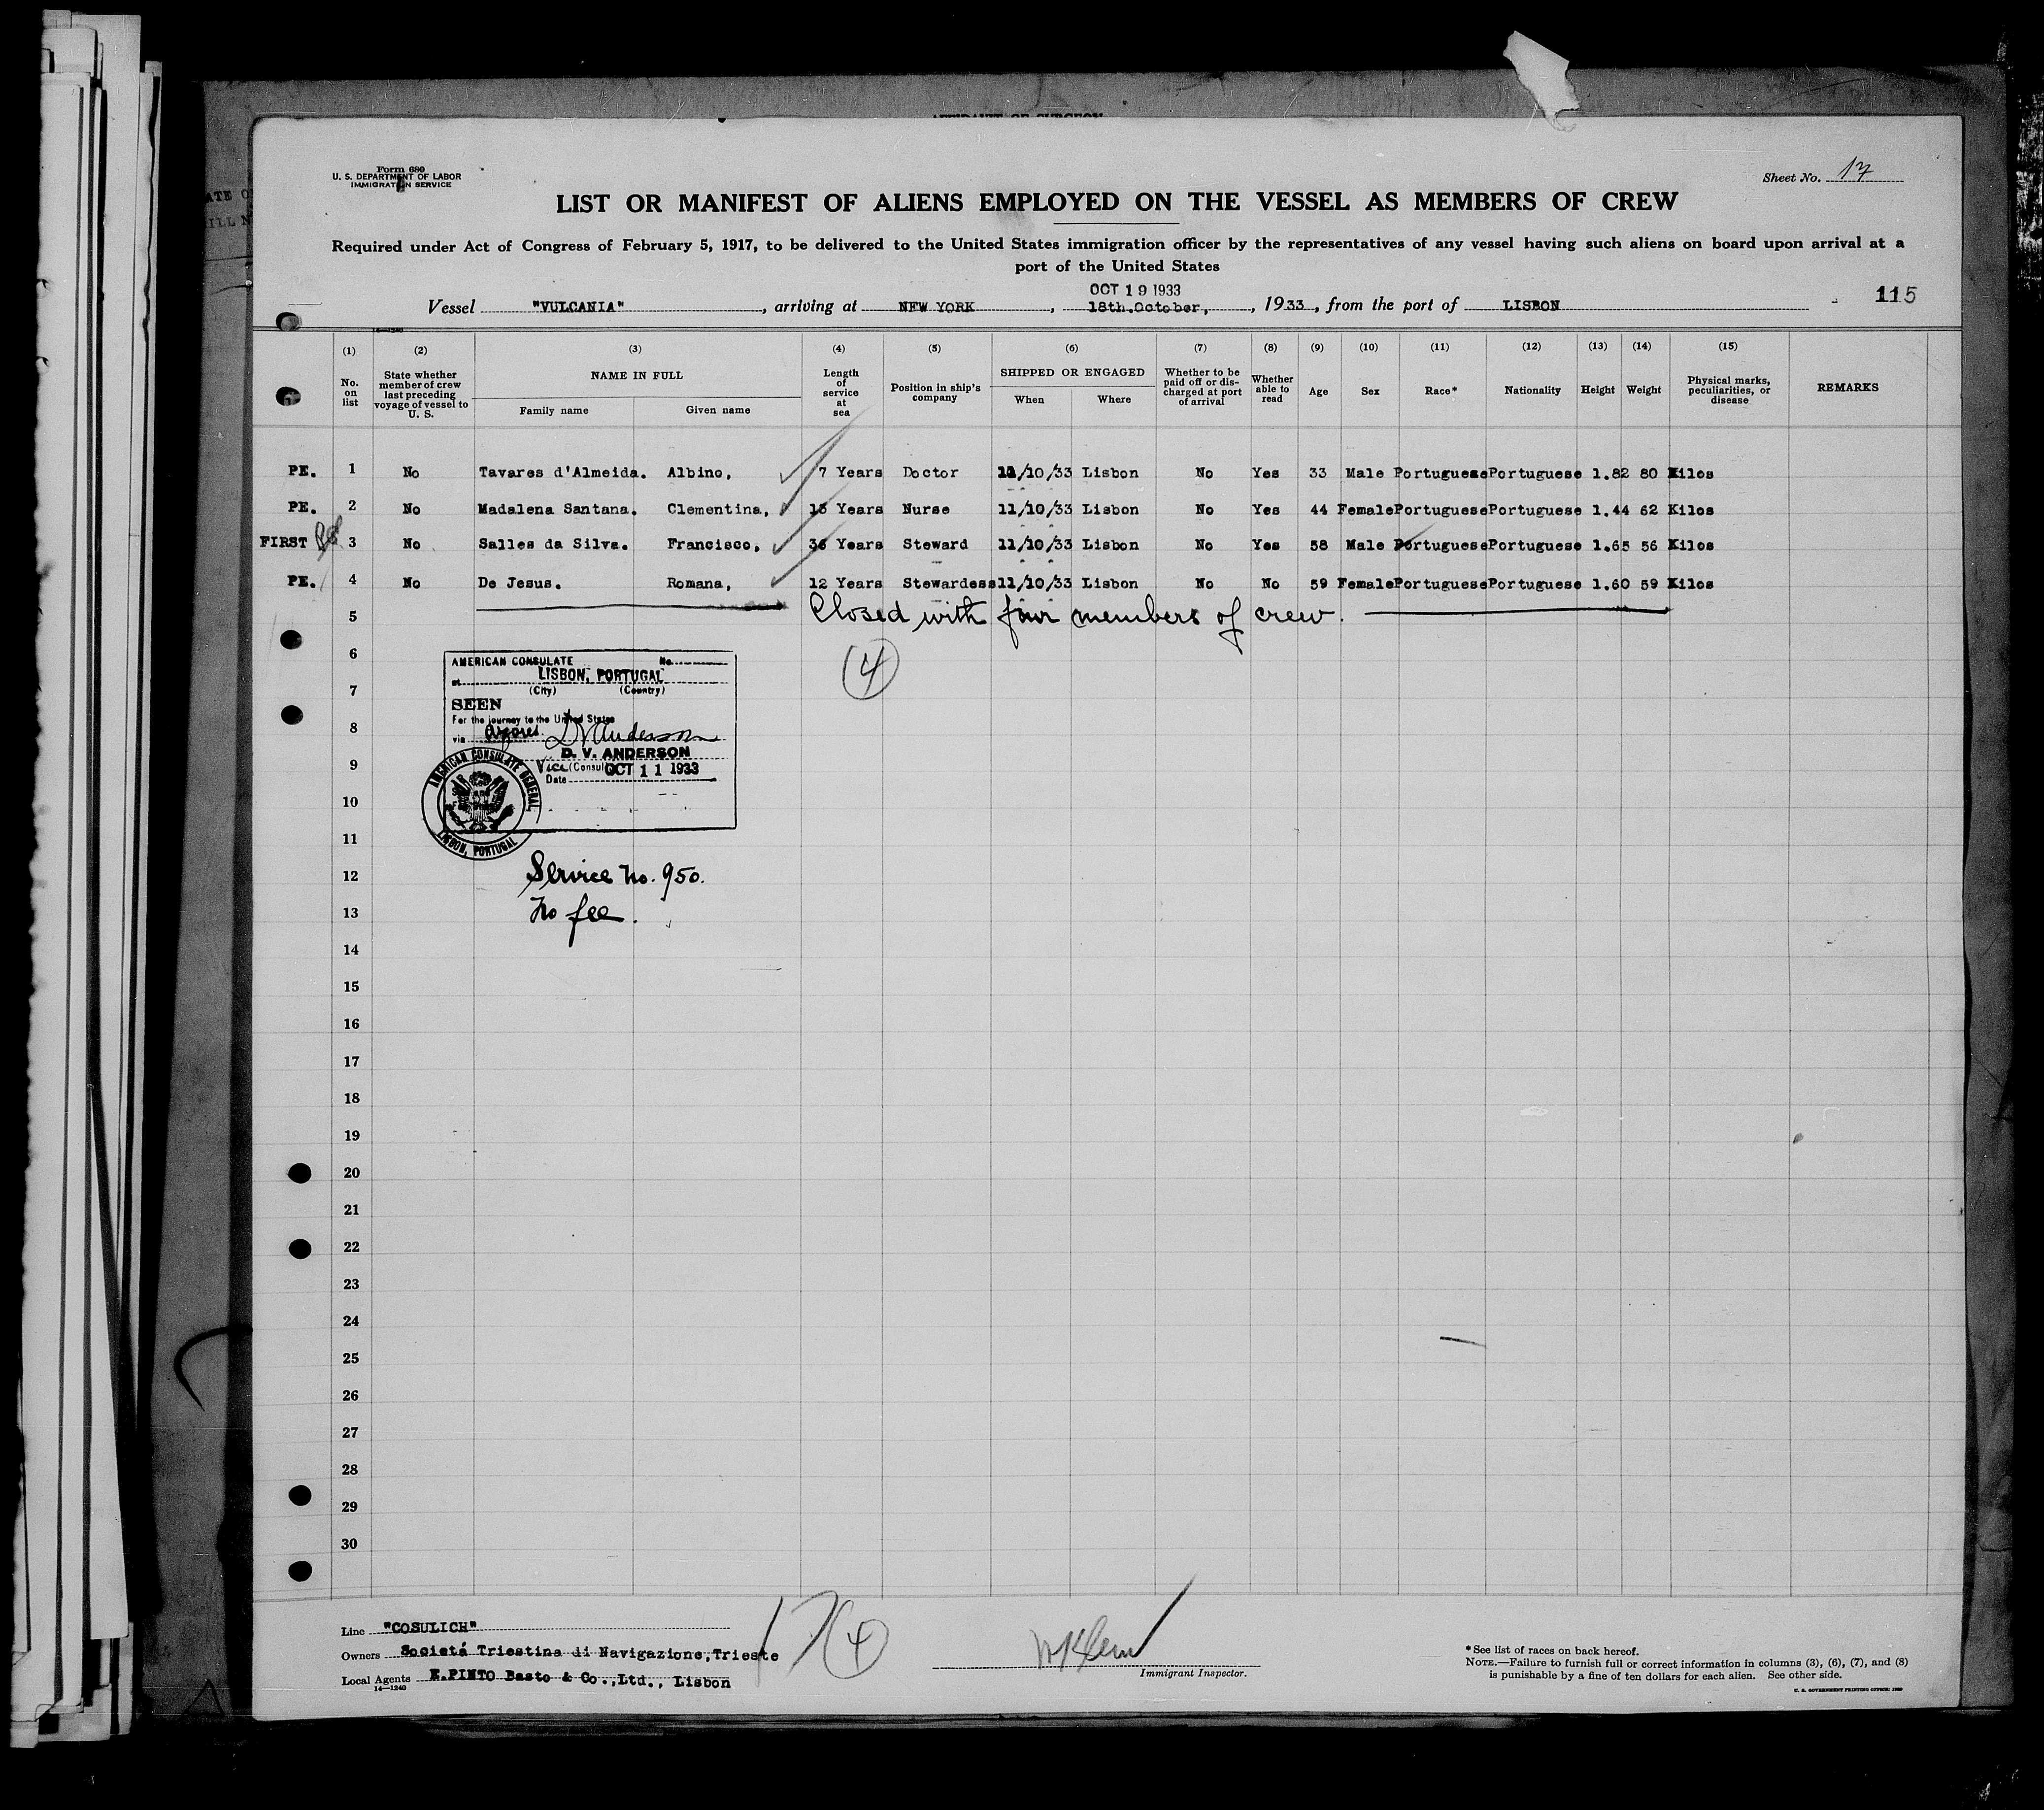 AFFIDAVIT OF SURGEON
Form 680
U. S. DEPARTMENT OF LABOR
IMMIGRATION SERVICE
Sheet No. 17
LIST OR MANIFEST OF ALIENS EMPLOYED ON THE VESSEL AS MEMBERS OF CREW
Required under Act of Congress of February 5, 1917, to be delivered to the United States immigration officer by the representatives of any vessel having such aliens on board upon arrival at a
port of the United States
OCT 19 1933
115
Vessel "VULCANIA", arriving at NEW YORK, 18th.October, , 1933, from the port of LISBON
14—1240
(1) (2) (3) (4) (5) (6) (7) (8) (9) (10) (11) (12) (13) (14) (15)
No. on list
State whether member of crew last preceding voyage of vessel to U. S.
NAME IN FULL
Family name Given name
Length of service at sea
Position in ship's company
SHIPPED OR ENGAGED
When Where
Whether to be paid off or discharged at port of arrival
Whether able to read
Age
Sex
Race*
Nationality
Height
Weight
Physical marks, peculiarities, or disease
REMARKS
PE. 1 No Tavares d'Almeida. Albino, 7 Years Doctor 11/10/33 Lisbon No Yes 33 Male Portuguese Portuguese 1.82 80 Kilos
PE. 2 No Madalena Santana. Clementina, 15 Years Nurse 11/10/33 Lisbon No Yes 44 Female Portuguese Portuguese 1.44 62 Kilos
FIRST 3 No Salles da Silva. Francisco, 36 Years Steward 11/10/33 Lisbon No Yes 58 Male Portuguese Portuguese 1.65 56 Kilos
PE. 4 No De Jesus. Romana, 12 Years Stewardess 11/10/33 Lisbon No No 59 Female Portuguese Portuguese 1.60 59 Kilos
5 Closed with four members of crew.
6
(4)
7
8
9
10
11
12
13
14
15
16
17
18
19
20
21
22
23
24
25
26
27
28
29
30
AMERICAN CONSULATE No.
at LISBON, PORTUGAL
(City) (Country)
SEEN
For the journey to the United States
via Azores D V Anderson
D. V. ANDERSON
Vice (Consul
Date OCT 11 1933
AMERICAN CONSULATE GENERAL
LISBON, PORTUGAL
Service No. 950.
No fee.
Line "COSULICH"
Owners Societá Triestina di Navigazione, Trieste
Local Agents E.PINTO Basto & Co.,Ltd., Lisbon
14—1240
17 (4)
Immigrant Inspector.
*See list of races on back hereof.
NOTE.—Failure to furnish full or correct information in columns (3), (6), (7), and (8)
is punishable by a fine of ten dollars for each alien. See other side.